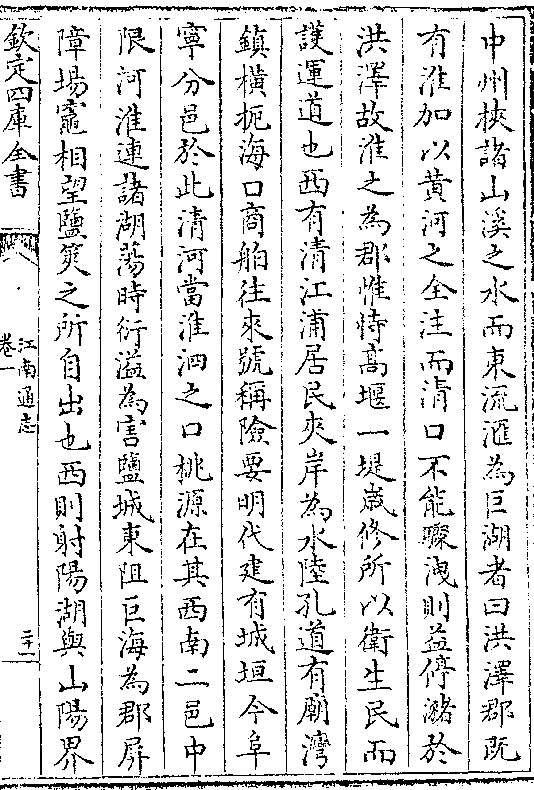 中州挾諸山溪之水而東流滙為巨湖者曰洪澤郡既
有淮加以黄河之全注而清口不能驟洩則益停瀦於
洪澤故淮之為郡惟恃高堰一堤嵗修所以衛生民而
護運道也西有清江浦居民夾岸為水陸孔道有廟灣
鎮橫扼海口商舶往來號稱險要明代建有城垣今阜
寧分邑於此清河當淮泗之口桃源在其西南二邑中
限河淮連諸湖蕩時衍溢為害鹽城東阻巨海為郡屏
障場竈相望鹽筴之所自出也西則射陽湖與山陽界
欽定四庫全書
江南通志
卷一
二十一